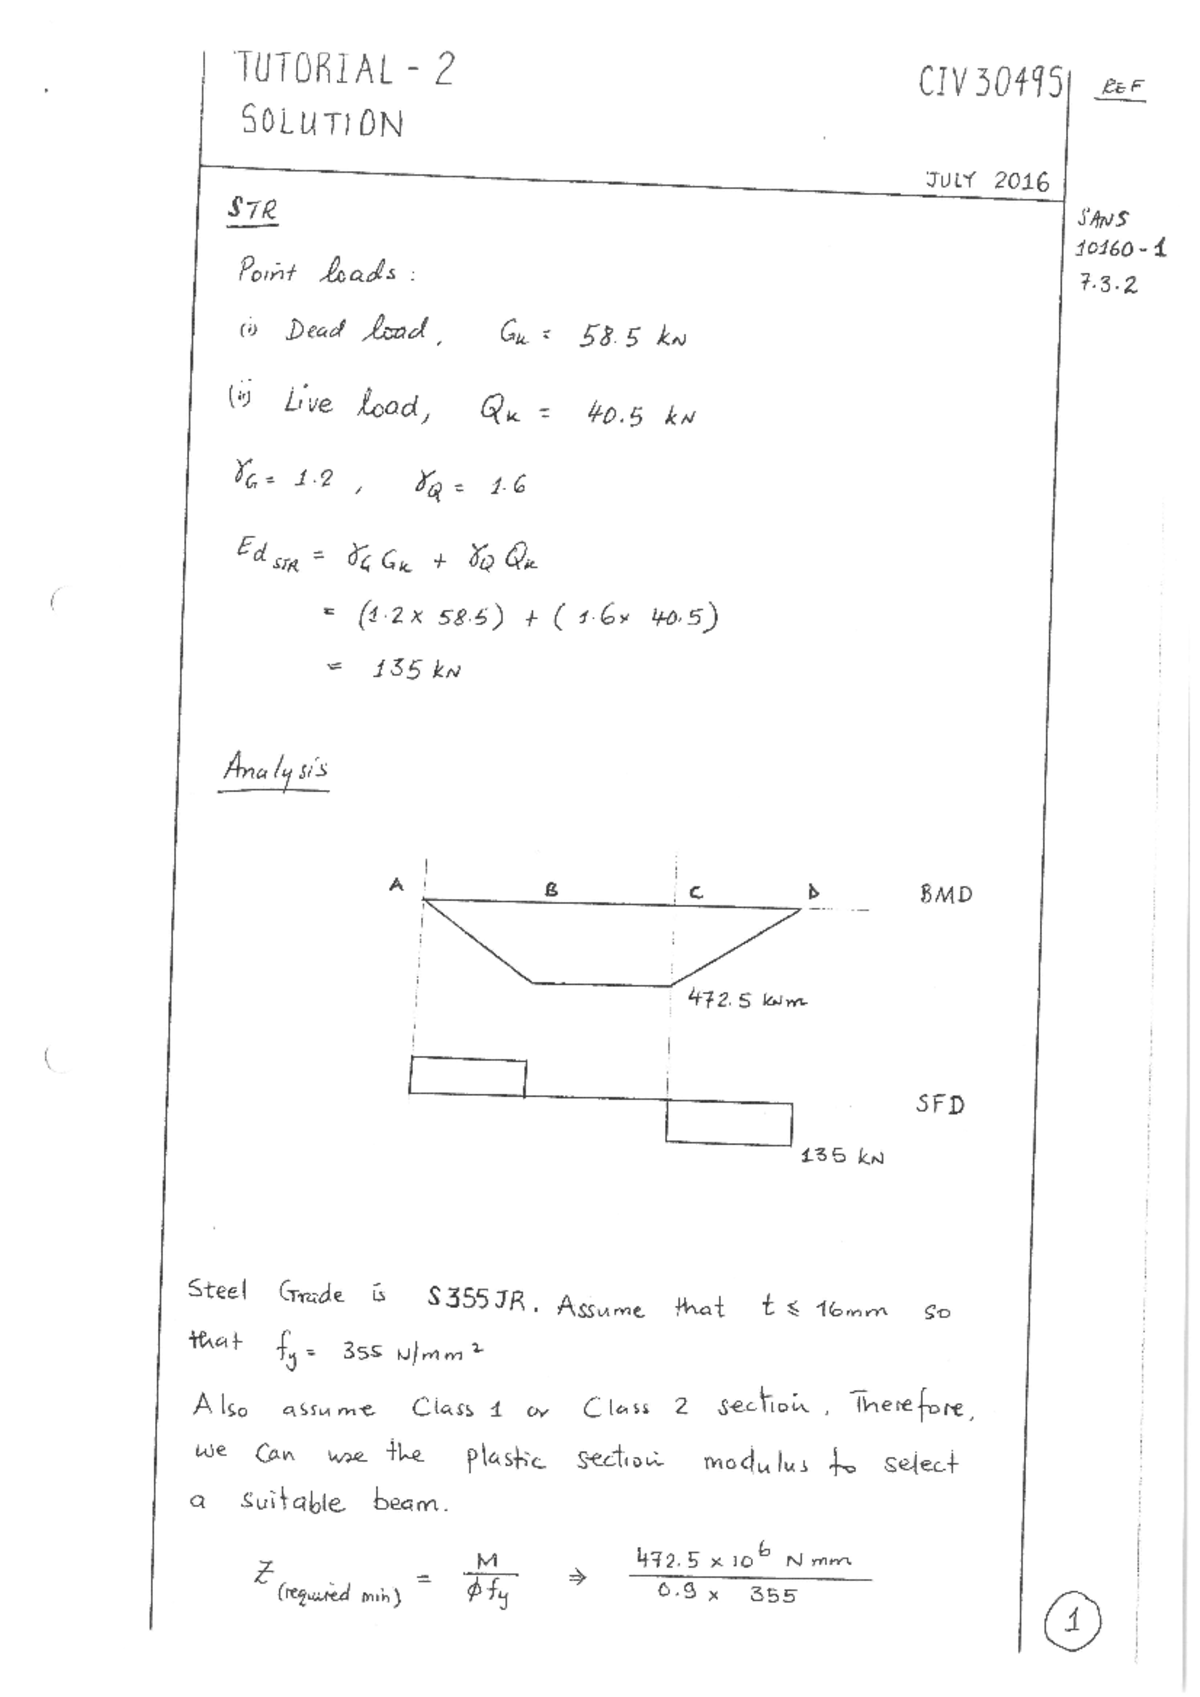 TUTORIAL - 2
SOLUTION
CIV30495
REF
JULY 2016
STR
SANS
10160-1
7.3.2
Point loads :
(i) Dead load, Gk = 58.5 kN
(ii) Live load, Qk = 40.5 kN
γG = 1.2 , γQ = 1.6
Ed STR = γG Gk + γQ Qk
= (1.2 x 58.5) + ( 1.6x 40.5)
= 135 kN
Analysis
A B C D BMD
472.5 kNm
SFD
135 kN
Steel Grade is S355JR. Assume that t ≤ 16mm so
that fy = 355 N/mm²
Also assume Class 1 or Class 2 section. Therefore,
we can use the plastic section modulus to select
a suitable beam.
Z (required min) = M / φ fy ⇒ 472.5 x 10⁶ N mm / 0.9 x 355
1